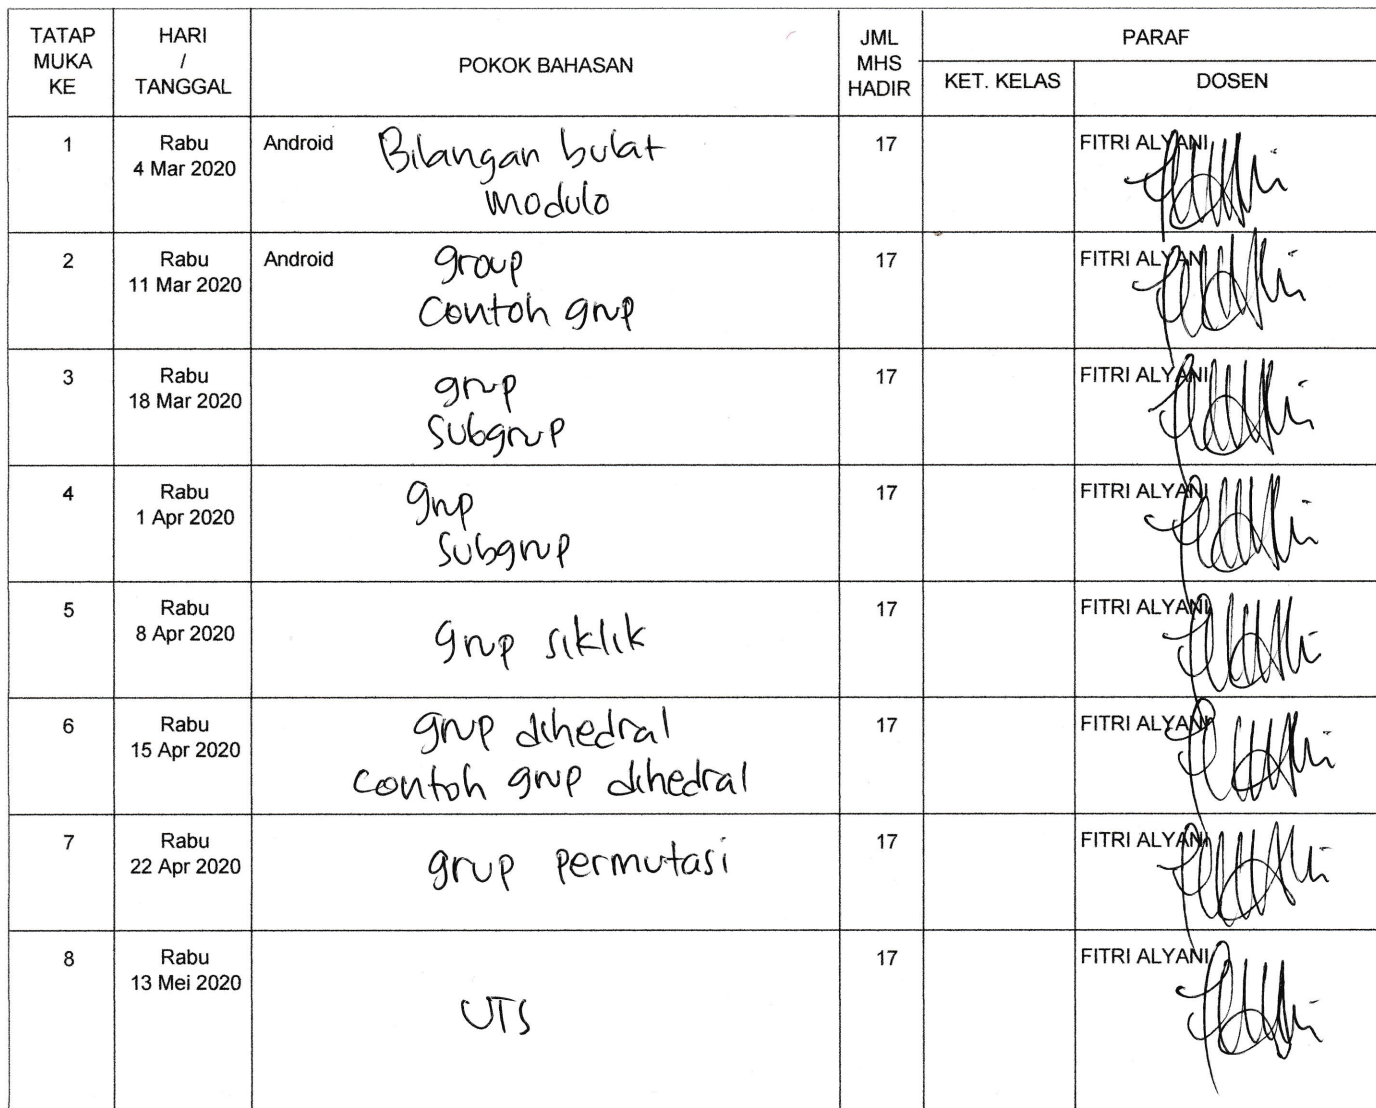 TATAP MUKA KE
HARI / TANGGAL
POKOK BAHASAN
JML MHS HADIR
PARAF
KET. KELAS
DOSEN
1
Rabu
4 Mar 2020
Android
Bilangan bulat
modulo
17
FITRI ALYANI
2
Rabu
11 Mar 2020
Android
group
Contoh grup
17
FITRI ALYANI
3
Rabu
18 Mar 2020
grup
Subgrup
17
FITRI ALYANI
4
Rabu
1 Apr 2020
grup
Subgrup
17
FITRI ALYANI
5
Rabu
8 Apr 2020
grup siklik
17
FITRI ALYANI
6
Rabu
15 Apr 2020
grup dihedral
contoh grup dihedral
17
FITRI ALYANI
7
Rabu
22 Apr 2020
grup permutasi
17
FITRI ALYANI
8
Rabu
13 Mei 2020
UTS
17
FITRI ALYANI